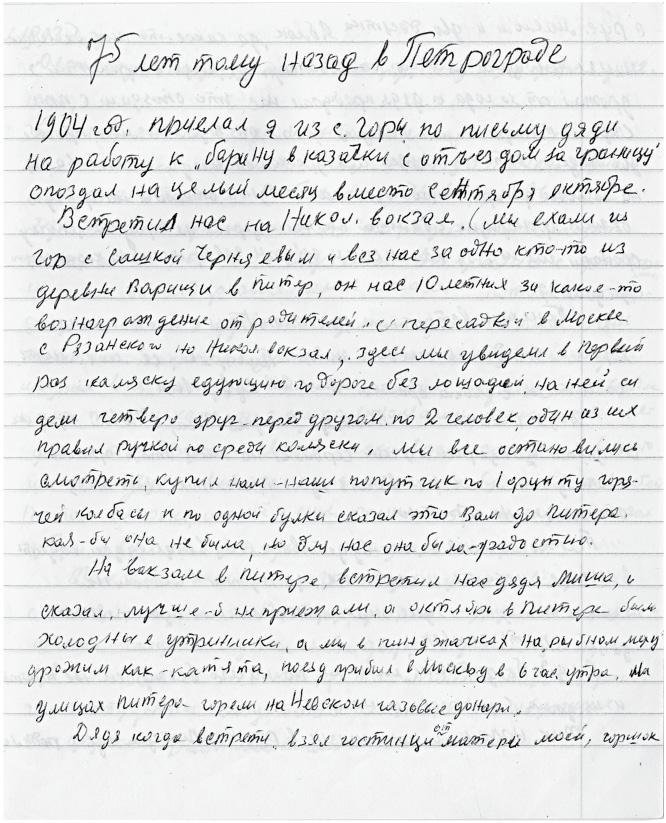 75 лет тому назад в Петрограде
1904 год. приехал я из с. Горы по письму дяди
на работу к „барину в казачки с отъездом за границу“
опоздал на целый месяц вместо сентября октябре.
Встретил нас на Никол. вокзал. (мы ехали из
Гор с Сашкой Черняевым и вез нас за одно кто-то из
деревни Варищи в Питер, он нас 10 летних за какое-то
вознаграждение от родителей. с пересадкой в Москве
с Рязанского на Никол. вокзал, здесь мы увидели в первый
раз каляску едующию по дороге без лошадей, на ней си
дели четверо друг-перед другом. по 2 человек. один из их
правил ручкой по среди коляски, мы все остановились
смотреть, купил нам-наш попутчик по 1 фунту горя-
чей колбасы и по одной булки сказал это Вам до Питера.
кая-бы она не была, но для нас она была-радостью.
На вокзале в Питере, встретил нас дядя Миша, и
сказал, лучше-б не приежали, а октябрь в Питере были
холодные утринники, а мы в пинджачках на рыбном меху
дрожим как-катята, поезд прибыл в Москву в 6 час. утра, на
улицах Питера-горели на Невском газовые фонари.
Дядя когда встрети, взял гостинцы от матери моей, горшок